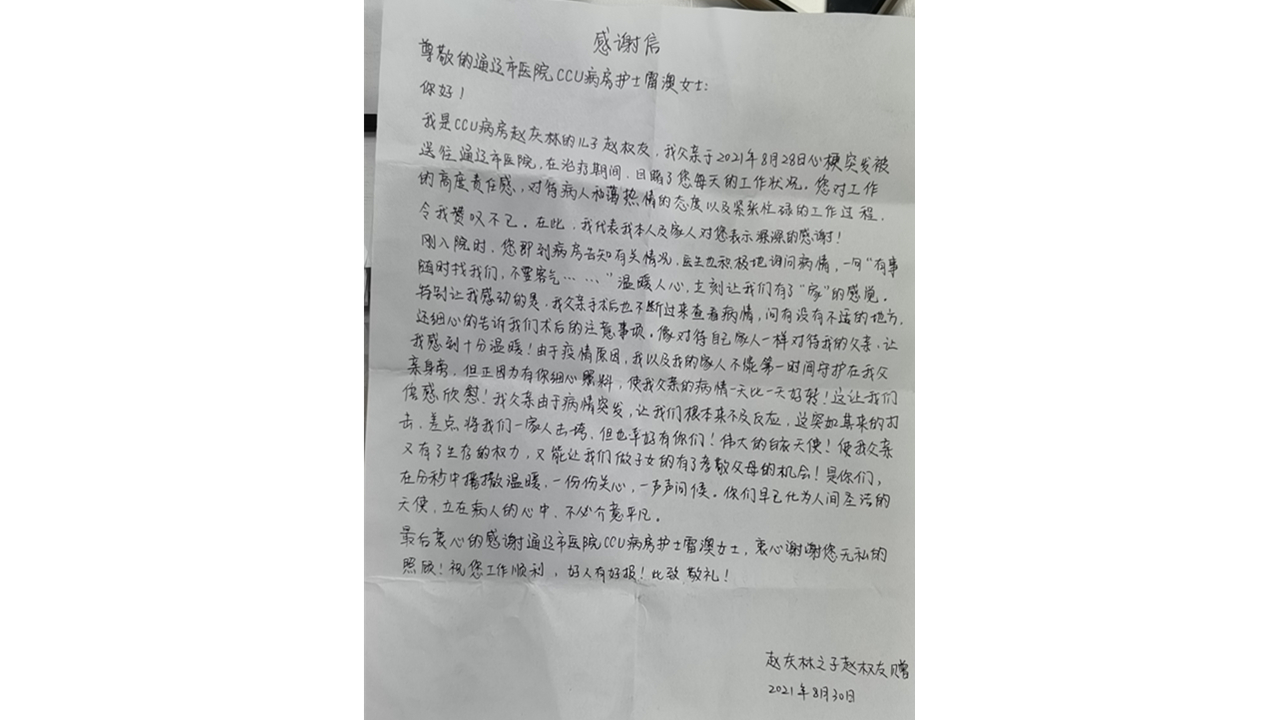 感谢信
尊敬的通辽市医院CCU病房护士雷澳女士:
你好!
我是CCU病房赵庆林的儿子赵权友,我父亲于2021年8月28日心梗突发被
送往通辽市医院,在治疗期间,目睹了您每天的工作状况。您对工作
的高度责任感,对待病人和蔼热情的态度以及紧张忙碌的工作过程,
令我赞叹不已。在此,我代表我本人及家人对您表示深深的感谢!
刚入院时,您即到病房告知有关情况,医生也积极地询问病情,一句“有事
随时找我们,不要客气……”温暖人心,立刻让我们有了“家”的感觉。
特别让我感动的是,我父亲手术后也不断过来查看病情,问有没有不适的地方,
还细心的告诉我们术后的注意事项。像对待自己家人一样对待我的父亲,让
我感到十分温暖!由于疫情原因,我以及我的家人不能第一时间守护在我父
亲身旁,但正因为有你细心照料,使我父亲的病情一天比一天好转!这让我们
倍感欣慰!我父亲由于病情突发,让我们根本来不及反应,这突如其来的打
击,差点将我们一家人击垮,但也幸好有你们!伟大的白衣天使!使我父亲
又有了生存的权力,又能让我们做子女的有了孝敬父母的机会!是你们,
在分秒中播撒温暖,一份份关心,一声声问候。你们早已化为人间圣洁的
天使,立在病人的心中,不必介意平凡。
最后衷心的感谢通辽市医院CCU病房护士雷澳女士,衷心谢谢您无私的
照顾!祝您工作顺利,好人有好报!此致 敬礼!
赵庆林之子赵权友赠
2021年8月30日